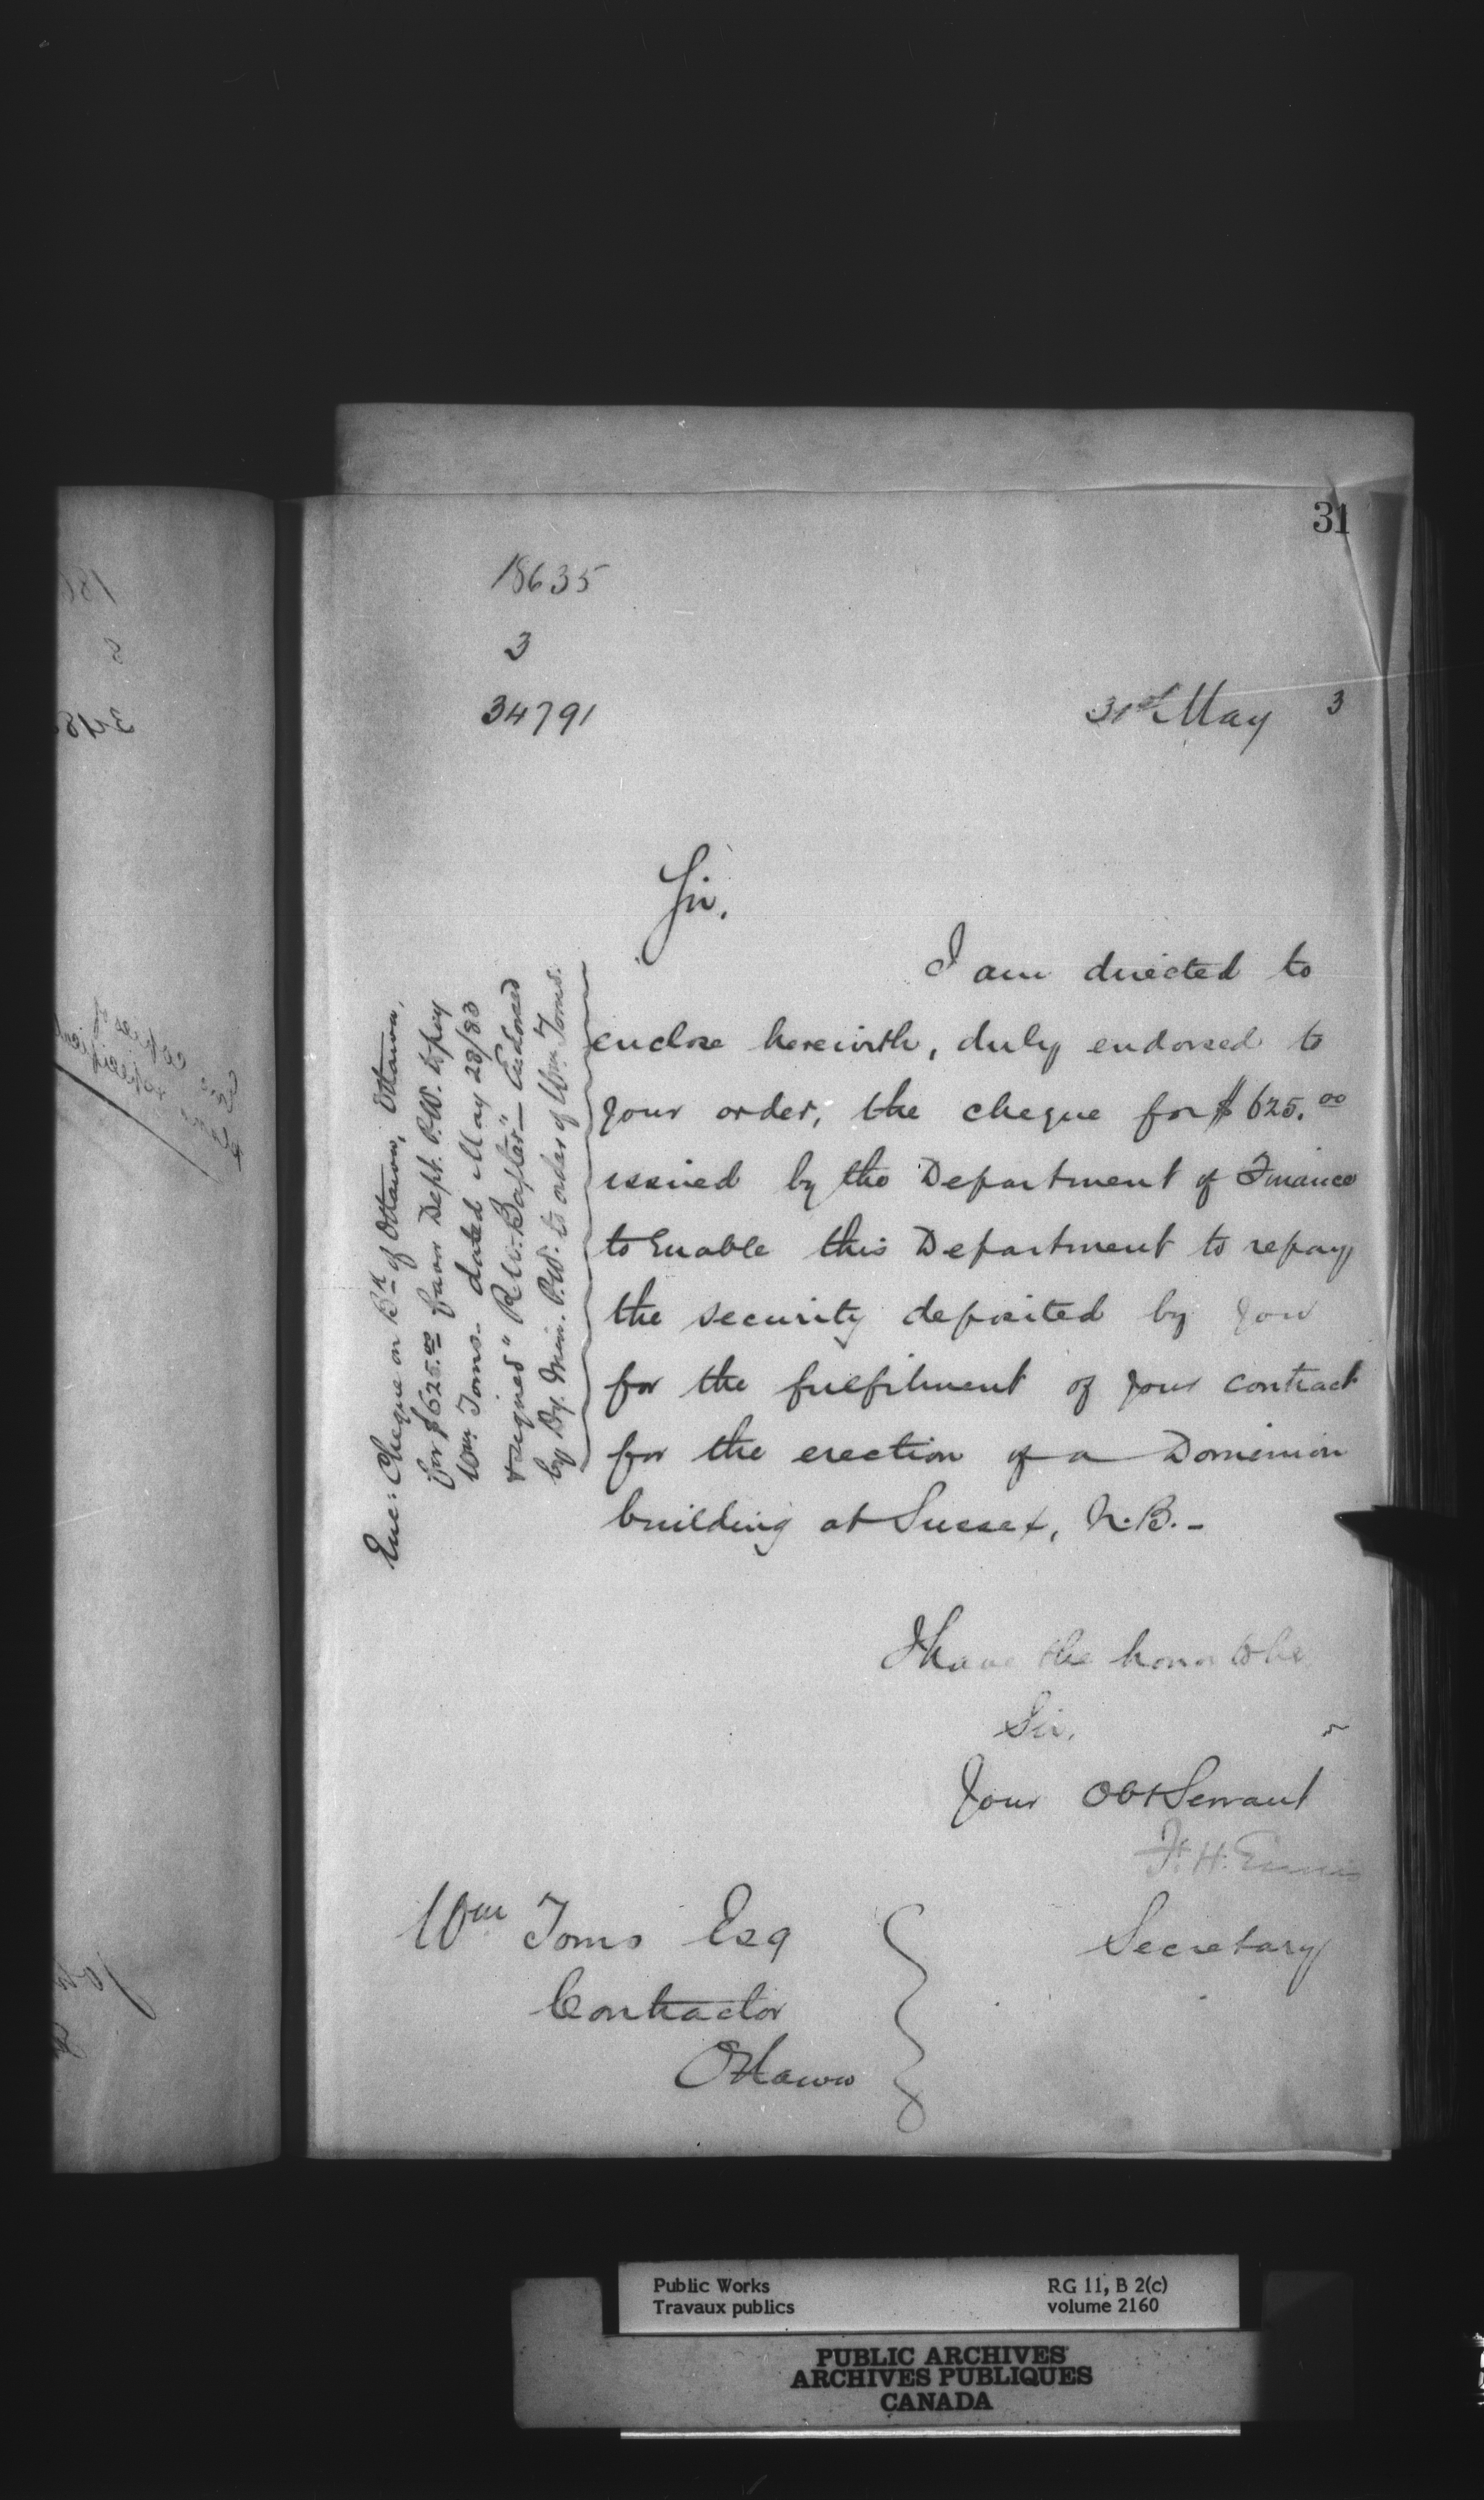 31
18635
3
34791
31st May 3
Sir,
I am directed to
enclose herewith, duly endorsed to
your order, the cheque for $625.00
issued by the Department of Finance
to Enable this Department to repay
the security deposited by you
for the fulfilment of your contract
for the erection of a Dominion
building at Sussex, N.B.-
Enc: Cheque on Bk of Ottawa, Ottawa,
for $625.00 favor Dept. P.W. to pay
Wm. Toms- dated May 28/83
& signed "R.W. Baxter"- Endorsed
by Dy. Min. P.W. to order of Wm. Toms.
I have the honor to be
Sir,
Your Obt Servant
F. H. Ennis
Secretary
Wm Toms Esq
Contractor
Ottawa
Public Works
Travaux publics
RG 11, B 2(c)
volume 2160
PUBLIC ARCHIVES
ARCHIVES PUBLIQUES
CANADA